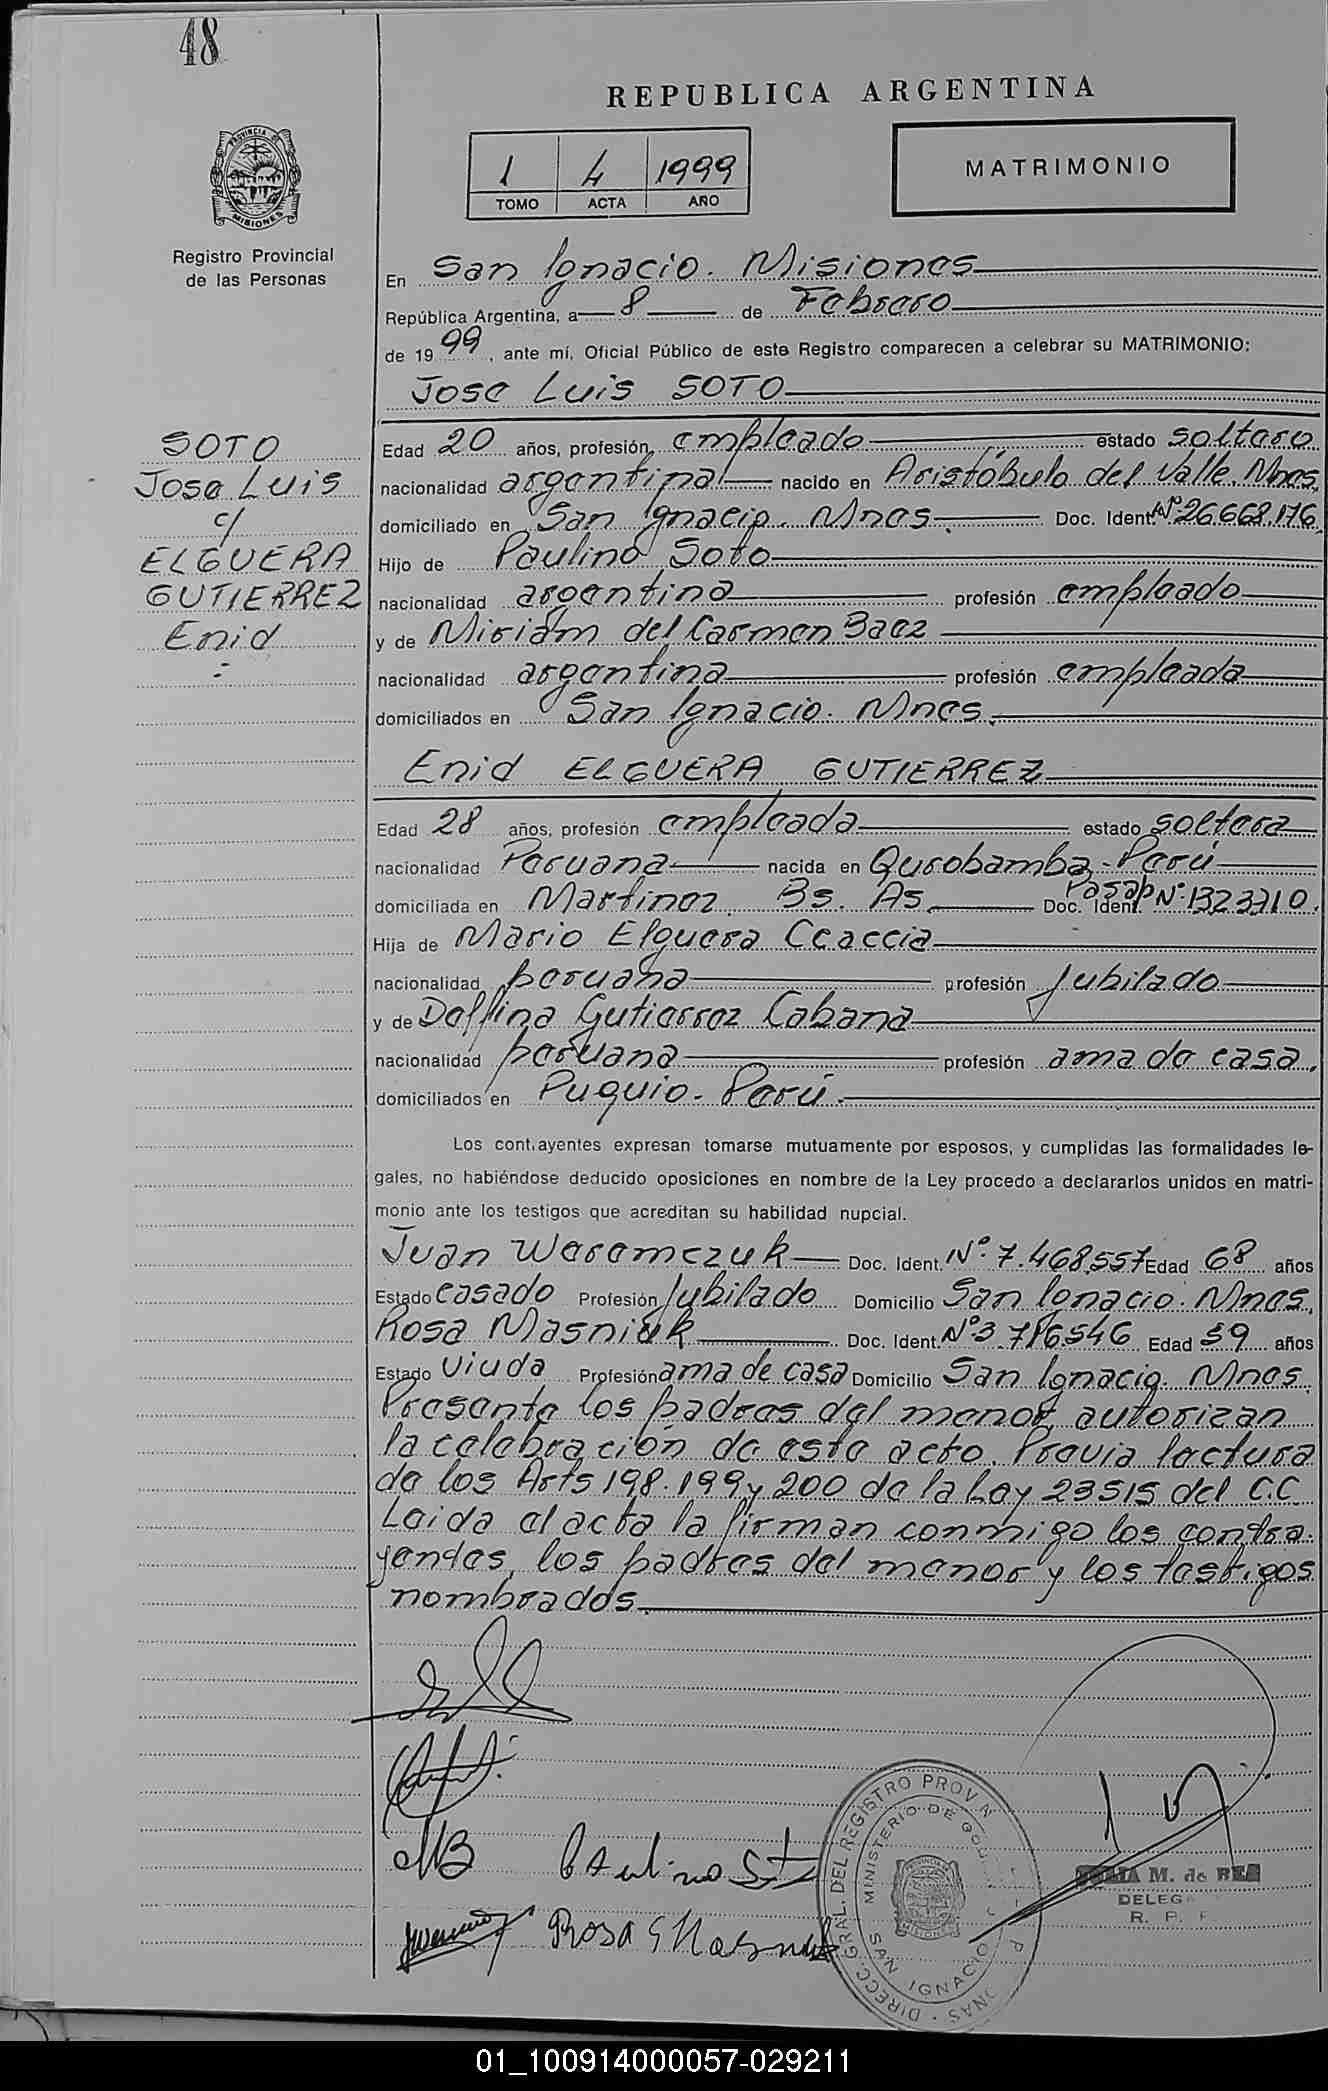 48
REPUBLICA ARGENTINA
1 4 1999
TOMO ACTA AÑO
MATRIMONIO
PROVINCIA DE
MISIONES
Registro Provincial
de las Personas
En San Ignacio. Misiones
República Argentina, a 8 de Febrero
de 1999, ante mí, Oficial Público de este Registro comparecen a celebrar su MATRIMONIO:
Jose Luis SOTO
SOTO
Jose Luis
c/
ELGUERA
GUTIERREZ
Enid
Edad 20 años, profesión empleado estado soltero
nacionalidad argentina nacido en Aristóbulo del Valle. Mnes.
domiciliado en San Ignacio. Mnes. Doc. Ident. Nº 26.668.176
Hijo de Paulino Soto
nacionalidad argentina profesión empleado
y de Miriam del Carmen Baez
nacionalidad argentina profesión empleada
domiciliados en San Ignacio. Mnes.
Enid ELGUERA GUTIERREZ
Edad 28 años, profesión empleada estado soltera
nacionalidad Peruana nacida en Qurobamba. Perú
domiciliada en Martinez. Bs. As. Doc. Ident. Pasap Nº 1323710.
Hija de Mario Elguera Ccaccia
nacionalidad peruana profesión Jubilado
y de Delfina Gutierrez Cabana
nacionalidad peruana profesión ama de casa.
domiciliados en Puquio. Perú.
Los cont.ayentes expresan tomarse mutuamente por esposos, y cumplidas las formalidades le-
gales, no habiéndose deducido oposiciones en nombre de la Ley procedo a declararlos unidos en matri-
monio ante los testigos que acreditan su habilidad nupcial.
Juan Waramczuk Doc. Ident. Nº 7.468.557 Edad 68 años
Estado casado Profesión Jubilado Domicilio San Ignacio. Mnes.
Rosa Masniuk Doc. Ident. Nº 3.716.546 Edad 59 años
Estado Viuda Profesión ama de casa Domicilio San Ignacio. Mnes.
Presente los padres del menor, autorizan
la celebración de este acto. Previa lectura
de los Arts 198.199 y 200 de la Ley 23515 del C.C.
Leida el acta la firman conmigo los contra-
yentes, los padres del menor y los testigos
nombrados.
MB Paulino Soto
Rosa Masniuk
DIRECC. GRAL. DEL REGISTRO PROV
MINISTERIO DE
SAN IGNACIO
M. de
DELEG
R. P.
01_100914000057-029211